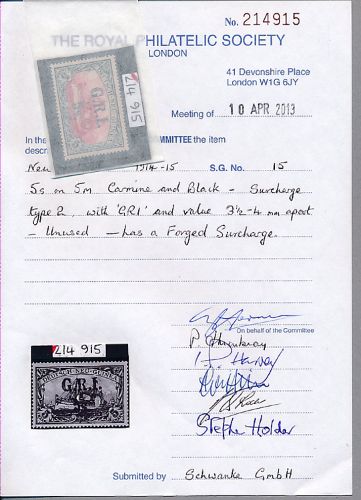 No. 214915
THE ROYAL PHILATELIC SOCIETY
LONDON
41 Devonshire Place
London W1G 6JY
Meeting of 10 APR 2013
G.R.I.
214 915
In the
COMMITTEE the item
descr
New 1914-15 S.G. No. 15
5s on 5m Carmine and Black - Surcharge
type 2, with 'GRI' and value 3½-4 mm apart.
- Unused - has a Forged Surcharge.
On behalf of the Committee
214 915
G.R.I.
5s
Stephe Holder
Submitted by Schwanke GmbH